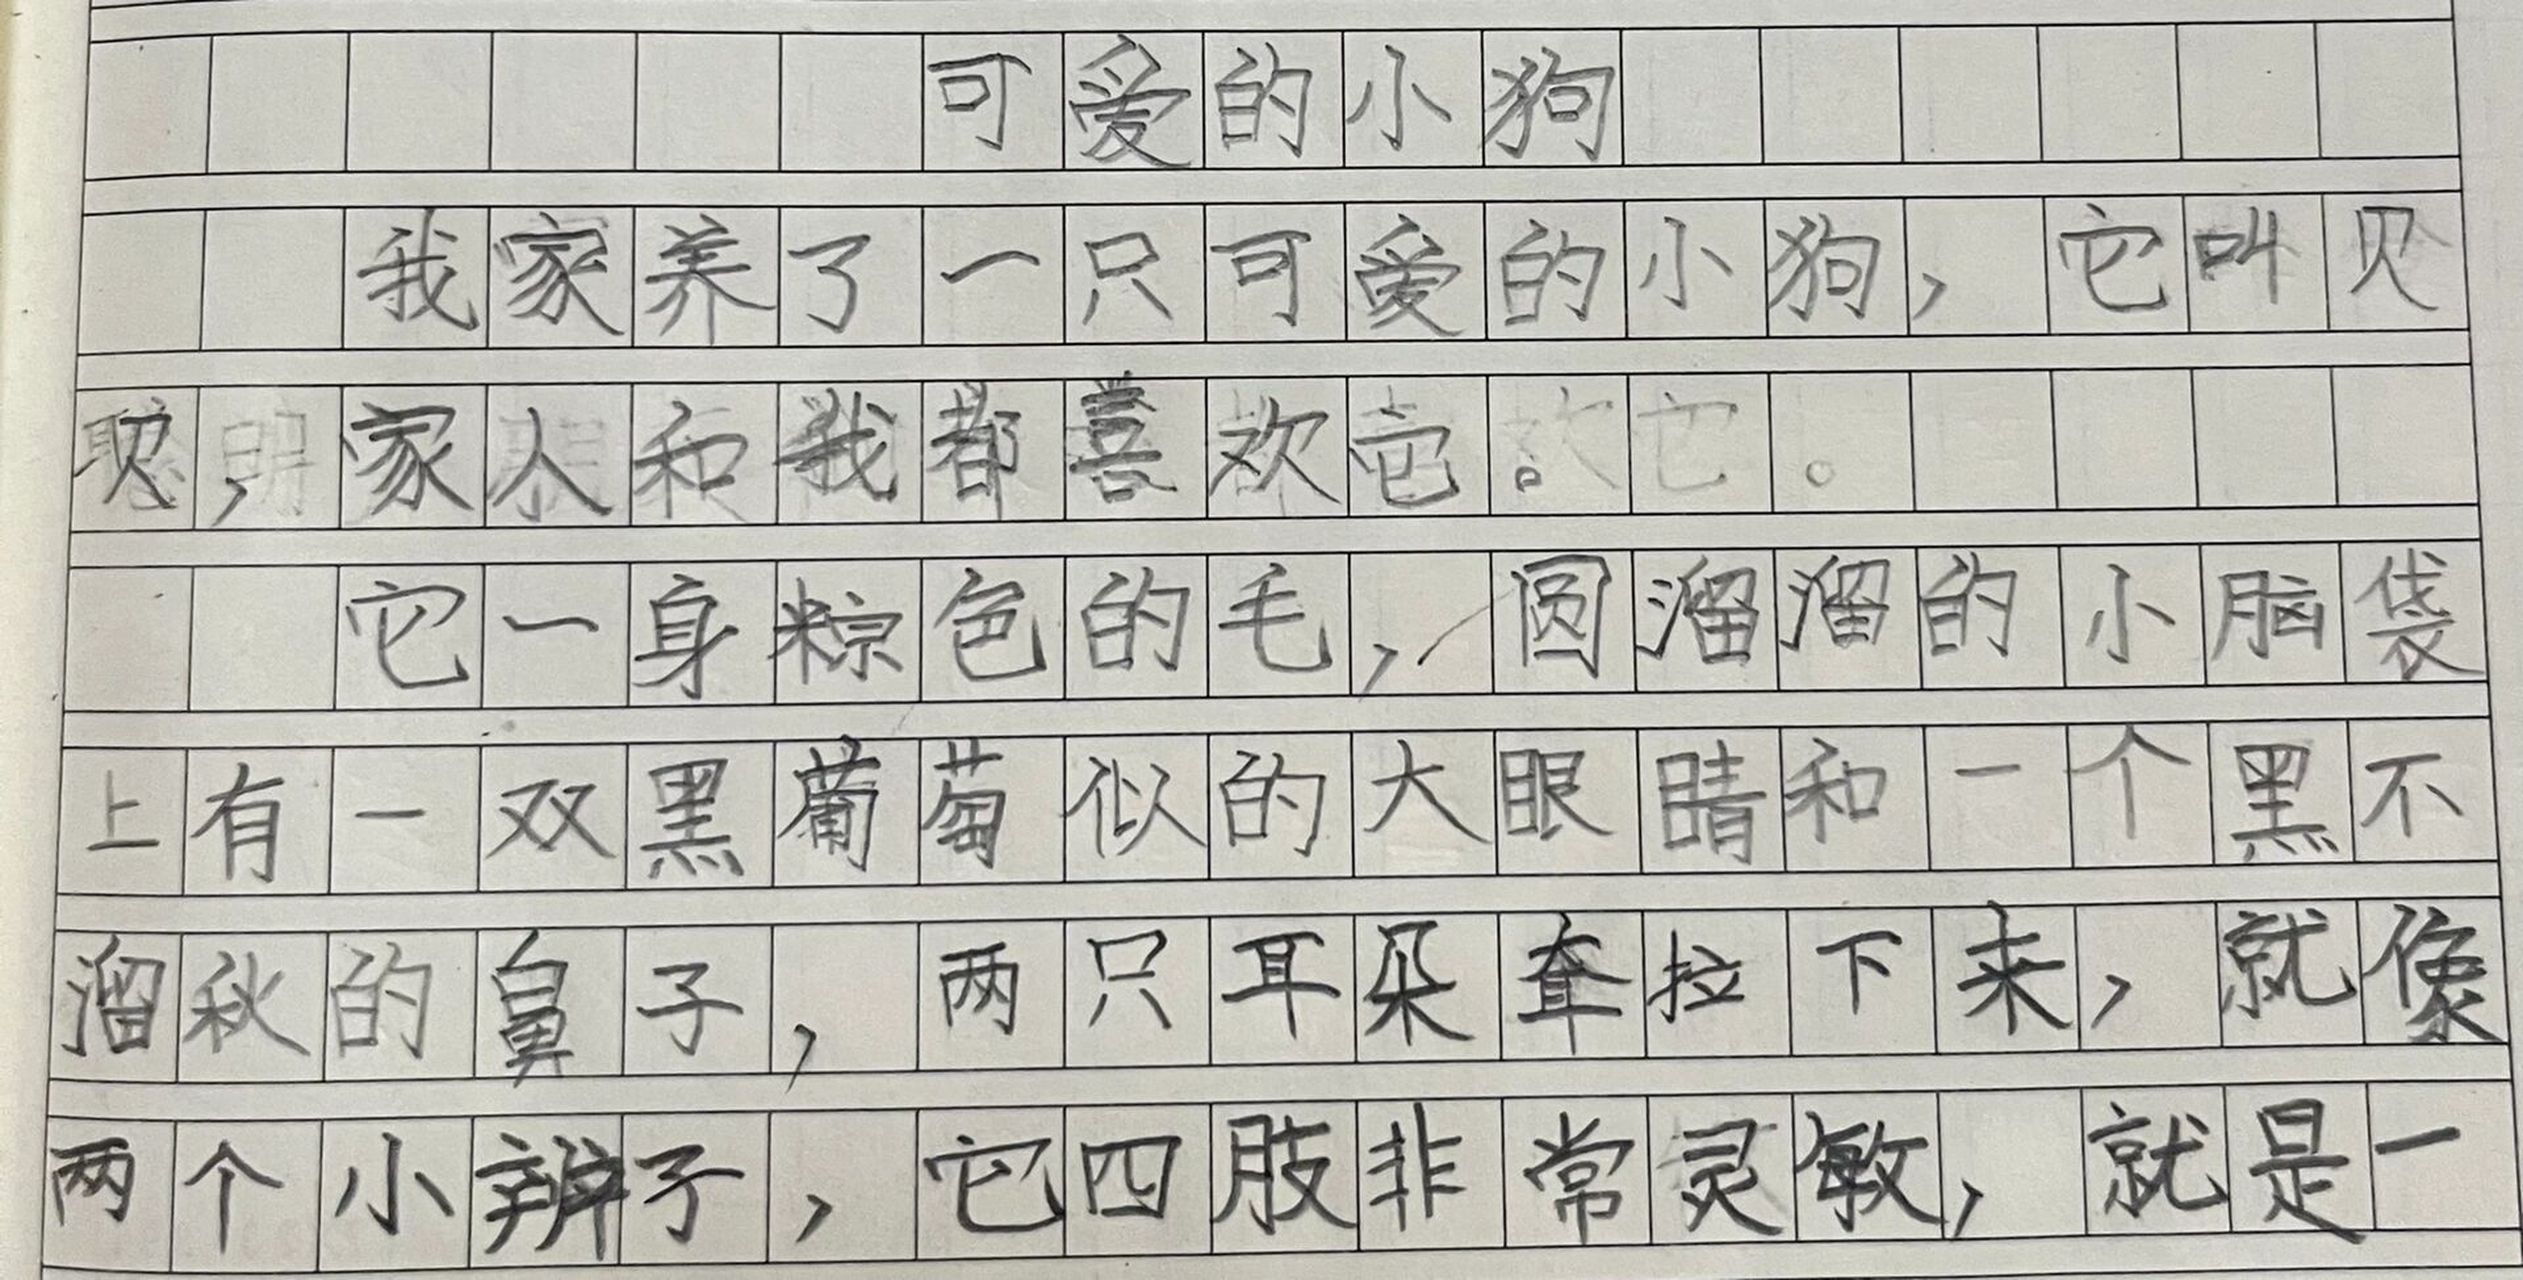 可爱的小狗
我家养了一只可爱的小狗，它叫贝
贝，家人和我都喜欢它。
它一身粽色的毛，圆溜溜的小脑袋
上有一双黑葡萄似的大眼睛和一个黑不
溜秋的鼻子，两只耳朵耷拉下来，就像
两个小辫子，它四肢非常灵敏，就是一